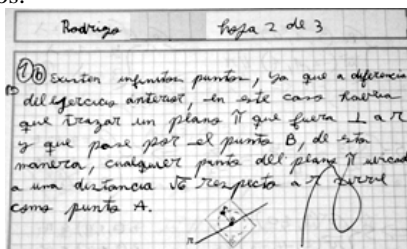 os.
Rodrigo hoja 2 de 3
1b Existen infinitos puntos, ya que a diferencia
del ejercicio anterior, en este caso habria
que trazar un plano π que fuera ⊥ a r
y que pase por el punto B, de esta
manera, cualquier punto del plano π ubicado
a una distancia √6 respecto a r sirve
como punto A.
r